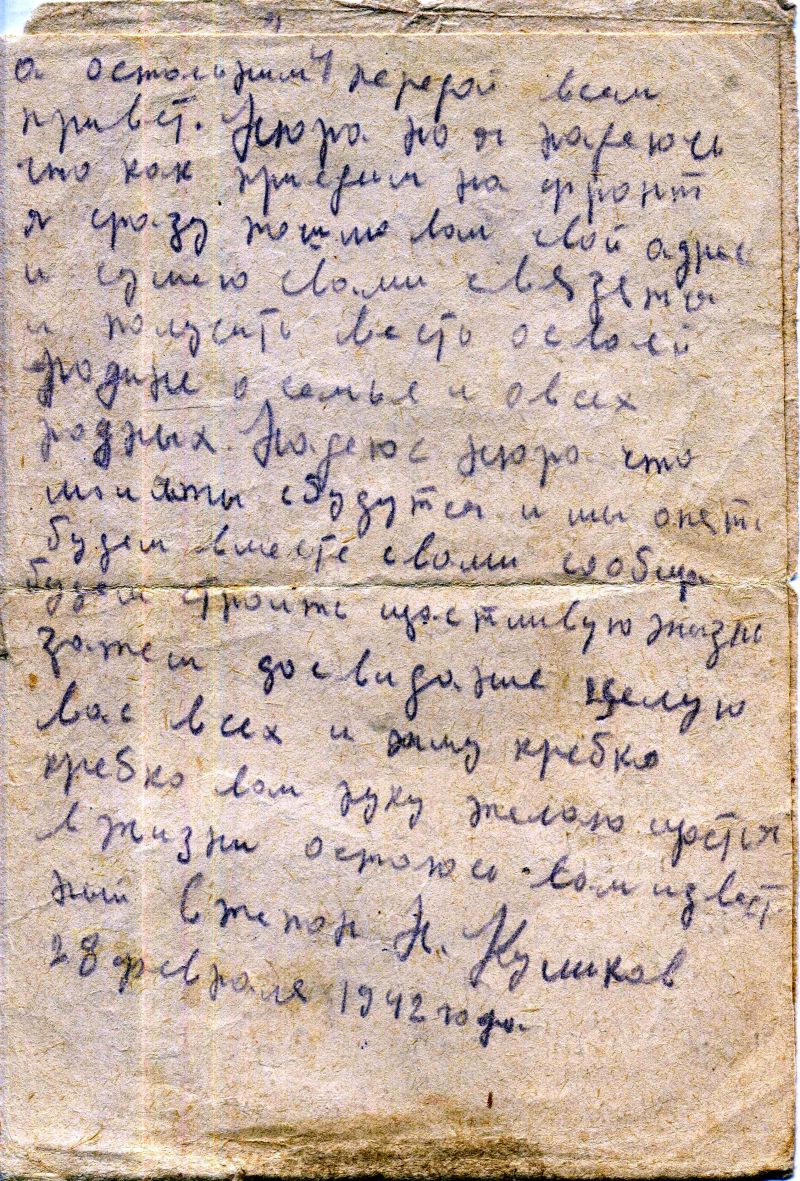 а остольним передай всем
привет. Нюра но я надеюсь
что как приедим на фронт
я сразу пошлю вам свой адрес
и сумею свами связятся
и получить весть освоей
родине о семье и овсех
родных. Надеюс нюра что
мои мты сбудутся и мы опят
будем вместе свами сообща
будем строить щастливую жизнь
затем досвидание целую
вас всех и жму кребко
кребко вам руку желаю щастя
в жизни остаюсь вам извест
ный Н. Куликов
28 февраля 1942 года